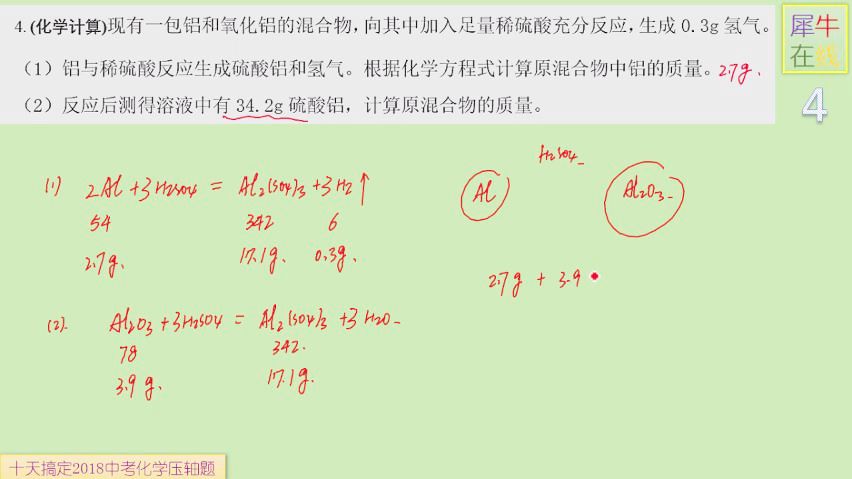 4.(化学计算)现有一包铝和氧化铝的混合物，向其中加入足量稀硫酸充分反应，生成 0.3g 氢气。
（1）铝与稀硫酸反应生成硫酸铝和氢气。根据化学方程式计算原混合物中铝的质量。2.7g.
（2）反应后测得溶液中有 34.2g 硫酸铝，计算原混合物的质量。
犀牛
在线
4
H2SO4
Al Al2O3
(1) 2Al + 3H2SO4 = Al2(SO4)3 + 3H2↑
54 342 6
2.7g. 17.1g. 0.3g.
2.7g + 3.9
(2). Al2O3 + 3H2SO4 = Al2(SO4)3 + 3H2O
78 342.
3.9g. 17.1g.
十天搞定2018中考化学压轴题